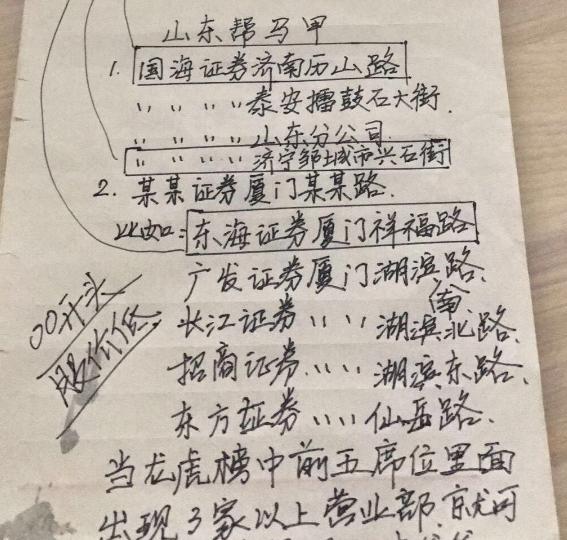 山东帮马甲
1. 国海证券济南历山路
〃 〃 〃 〃 泰安擂鼓石大街.
〃 〃 〃 〃 山东分公司.
〃 〃 〃 〃 济宁邹城市兴石街
2. 某某证券厦门某某路.
比如: 东海证券厦门祥福路
广发证券厦门湖滨路、
南
长江证券〃〃湖滨北路、
招商证券〃〃湖滨东路、
东方证券〃〃仙岳路.
00开头
股价低
当龙虎榜中前五席位里面
出现3家以上营业部,就可